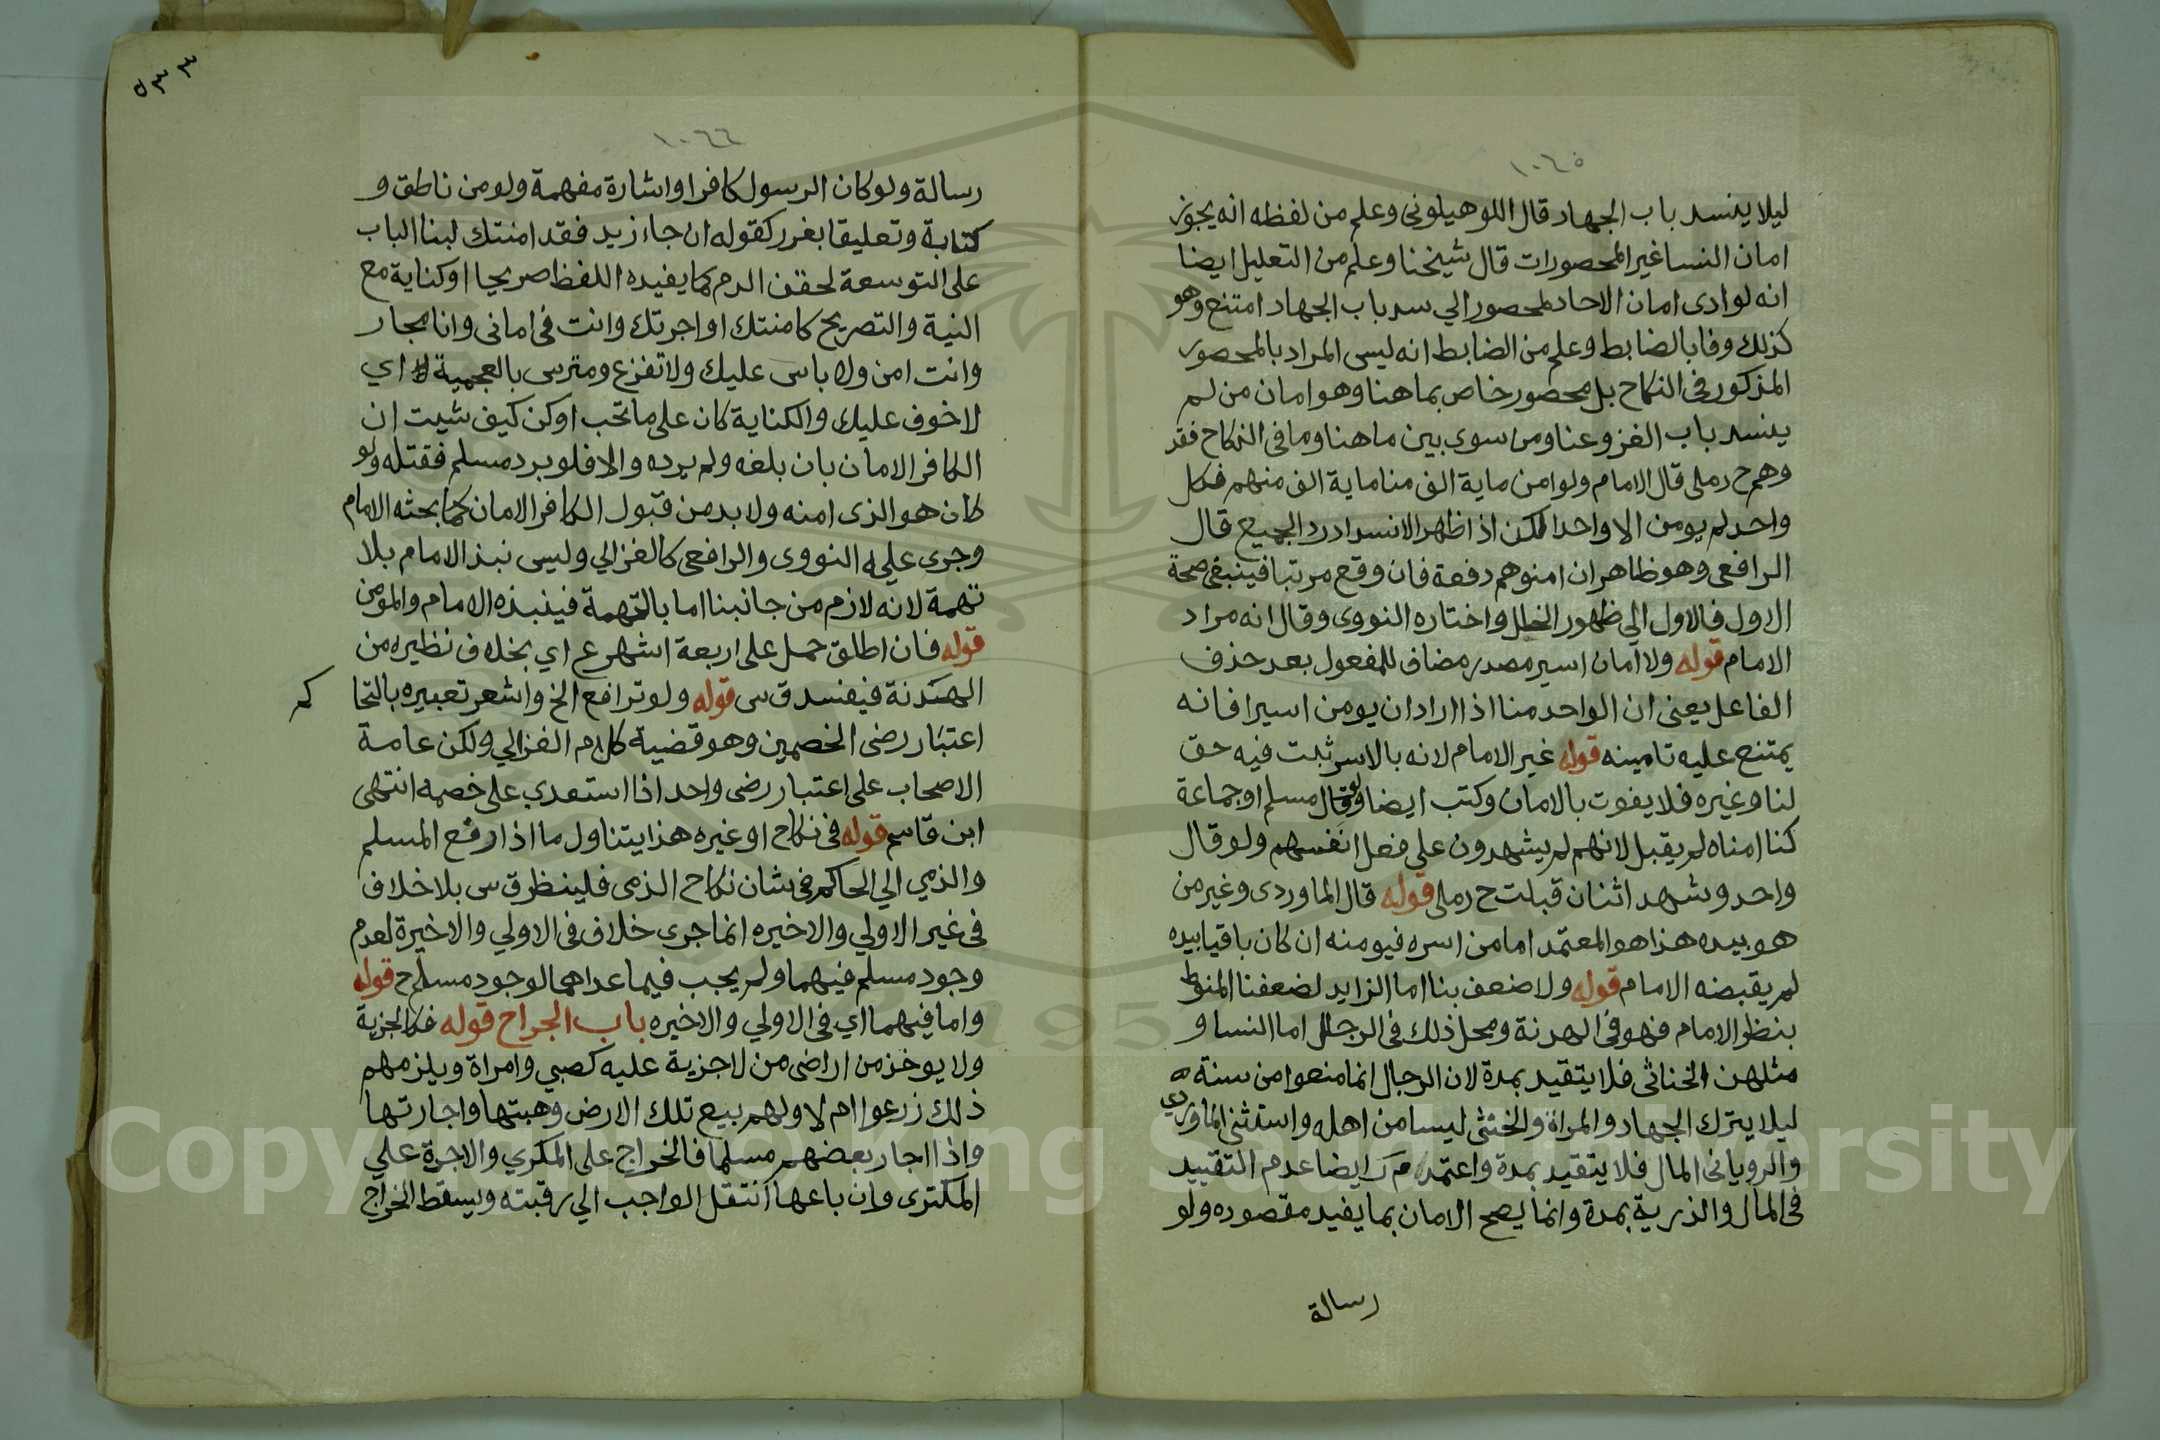 ١٠٦٥
ليلا ينسد باب الجهاد قال اللوهيلونى وعلم من لفظه انه يجوز
امان النسا غير المحصورات قال شيخنا وعلم من التعليل ايضا
انه لو ادى امان الاحاد لمحصور الي سد باب الجهاد امتنع وهو
كذلك وفا بالضابط وعلم من الضابط انه ليس المراد بالمحصور
المذكور فى النكاح بل محصور خاص بما هنا وهو امان من لم
ينسد باب الغزو عنا ومن سوى بين ما هنا وما فى النكاح فقد
وهم ح رملى قال الامام ولو امن ماية الف منا ماية الف منهم فكل
واحد لم يومن الا واحدا لكن اذا ظهر الانسداد رد الجميع قال
الرافعى وهو ظاهر ان امنوهم دفعة فان وقع مرتبا فينبغى صحة
الاول فالاول الي ظهور الخلل واختاره النووى وقال انه مراد
الامام قوله ولا امان اسير مصدر مضاف للمفعول بعد حذف
الفاعل يعنى ان الواحد منا اذا اراد ان يومن اسيرا فانه
يمتنع عليه تامينه قوله غير الامام لانه بالاسر ثبت فيه حق
لنا وغيره فلا يفوت بالامان وكتب ايضا ولو قال مسلم او جماعة
كنا امناه لم يقبل لانهم لم يشهدون علي فعل انفسهم ولو قال
واحد وشهد اثنان قبلت ح رملى قوله قال الماوردى وغير من
هو بيده هذا هو المعتمد اما من اسره فيومنه ان كان باقيا بيده
لم يقبضه الامام قوله ولا ضعف بنا اما الزايد لضعفنا المنوط
بنظر الامام فهو فى الهدنة ومحل ذلك فى الرجال اما النسا و
مثلهن الخناثى فلا يتقيد بمدة لان الرجال انما منعوا من سنة
ليلا يترك الجهاد والمراة والخنثى ليسا من اهله واستثنى الماوردي
والرويانى المال فلا يتقيد بمدة واعتمده م ر ايضا عدم التقييد
فى المال والذرية بمدة وانما يصح الامان بما يفيد مقصوده ولو
رسالة
٥٣٣
١٠٦٦
رسالة ولو كان الرسول كافرا واشارة مفهمة ولو من ناطق و
كتابة وتعليقا بغرر كقوله ان جاء زيد فقد امنتك لبنا الباب
على التوسعة لحقن الدم كما يفيده اللفظ صريحا او كناية مع
النية والتصريح كامنتك او اجرتك وانت فى امانى وانا مجار
وانت امن ولا باس عليك ولا تفزع ومترس بالعجمية اي
لا خوف عليك والكناية كان على ما تحب او كن كيف شيت ان
الكافر الامان بان بلغه ولم يرده والا فلو برد مسلم فقتله ولو
كان هو الذى امنه ولا بد من قبول الكافر الامان كما بحثه الامام
وجرى عليه النووى والرافعى كالغزالي وليس نبذ الامام بلا
تهمة لانه لازم من جانبنا اما بالتهمة فينبذه الامام والمومن
قوله فان اطلق حمل على اربعة اشهر ع اي بخلاف نظيره من
الهدنة فيفسد ق س قوله ولو ترافع الخ واشعر تعبيره بالتحا
كم
اعتبار رضى الخصمين وهو قضية كلام الغزالي ولكن عامة
الاصحاب على اعتبار رضى واحد اذا استعدى على خصمه انتهى
ابن قاسم قوله فى نكاح او غيره هذا يتناول ما اذا رفع المسلم
والذمي الي الحاكم فى شان نكاح الذمى فلينظر ق س بلا خلاف
فى غير الاولي والاخيره انما جرى خلاف فى الاولي والاخيرة لعدم
وجود مسلم فيهما ولم يجب فيما عداهما لوجود مسلم ح قوله
واما فيهما اي فى الاولي والاخيره باب الجراح قوله فكالجزية
ولا يوخذ من اراضى من لا جزية عليه كصبي وامراة ويلزمهم
ذلك زرعوا ام لا ولهم بيع تلك الارض وهبتها واجارتها
واذا اجار بعضهم مسلما فالخراج على المكري والاجرة علي
المكترى وان باعها انتقل الواجب الي رقبته ويسقط الخراج
Copyright © King Saud University
1957